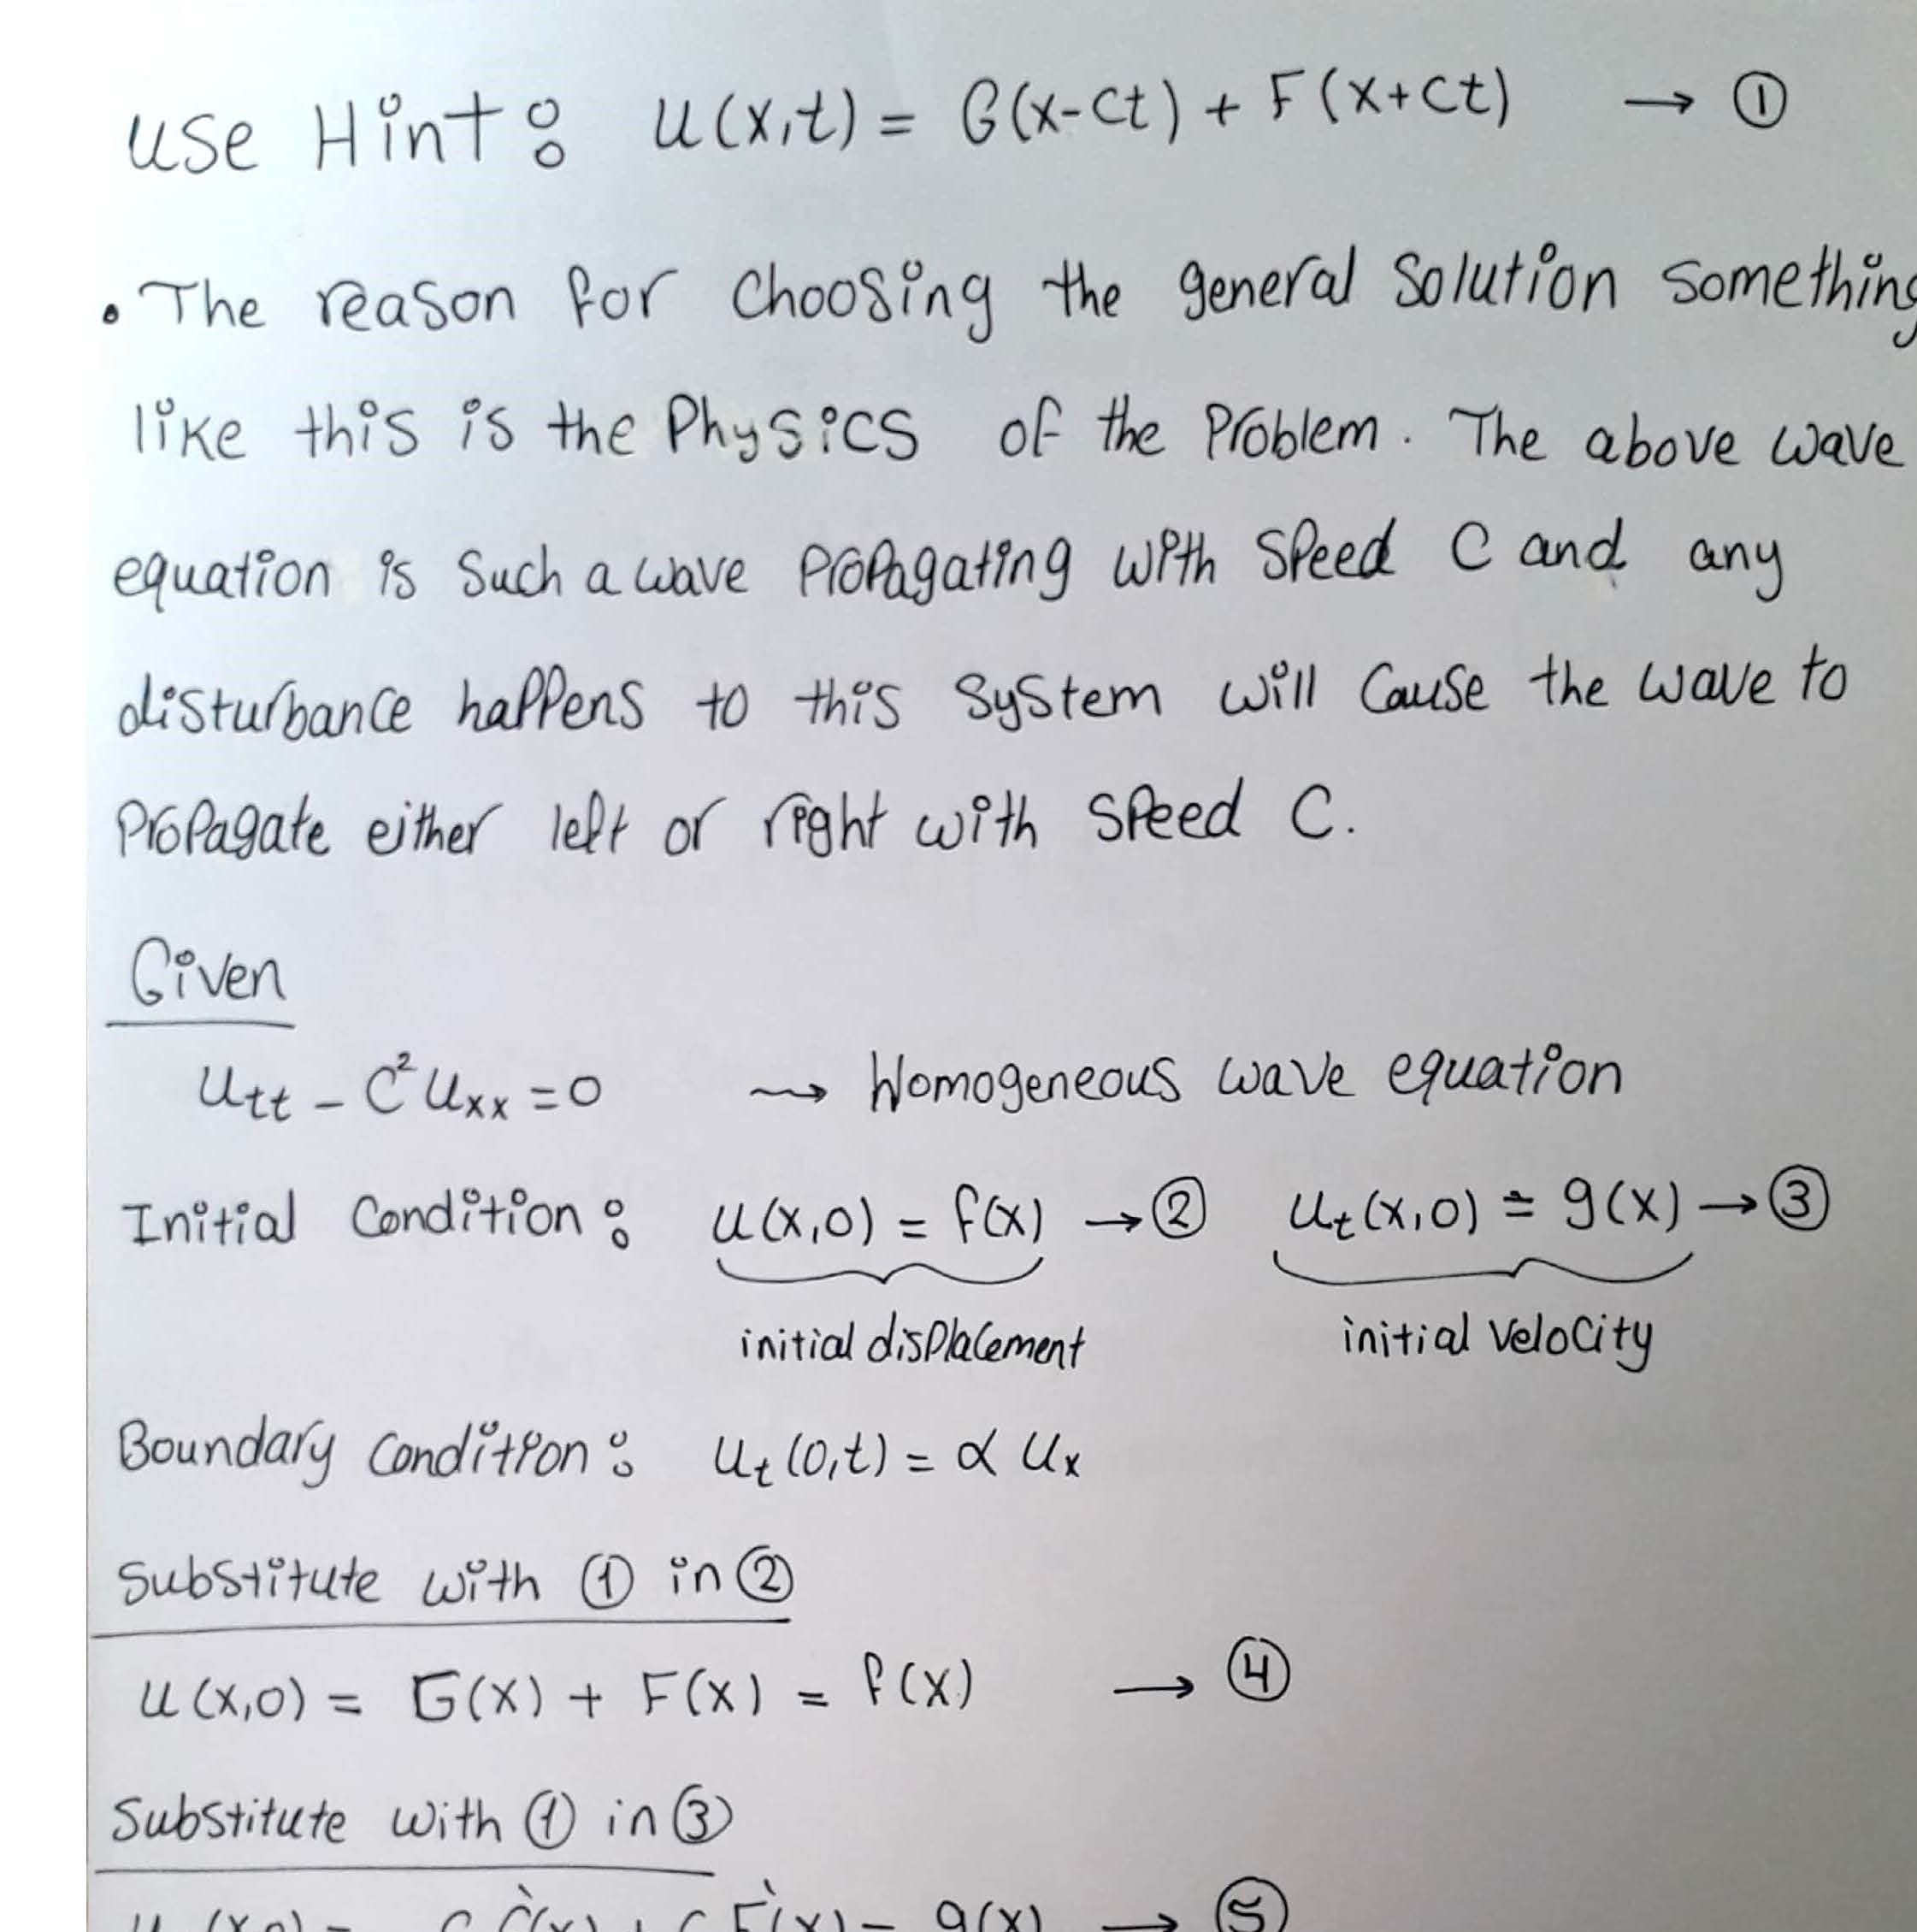 use Hint: u(x,t) = G(x-ct) + F(x+ct) → ①
• The reason for choosing the general solution something
like this is the Physics of the Problem. The above wave
equation is such a wave propagating with speed c and any
disturbance happens to this system will cause the wave to
Propagate either left or right with speed C.
Given
u_tt - c² u_xx = 0 ⇝ Homogeneous wave equation
Initial Condition: u(x,0) = f(x) → ② u_t(x,0) = g(x) → ③
initial displacement initial velocity
Boundary condition: u_t(0,t) = α u_x
Substitute with ① in ②
u(x,0) = G(x) + F(x) = f(x) → ④
Substitute with ① in ③
g(x) → ⑤